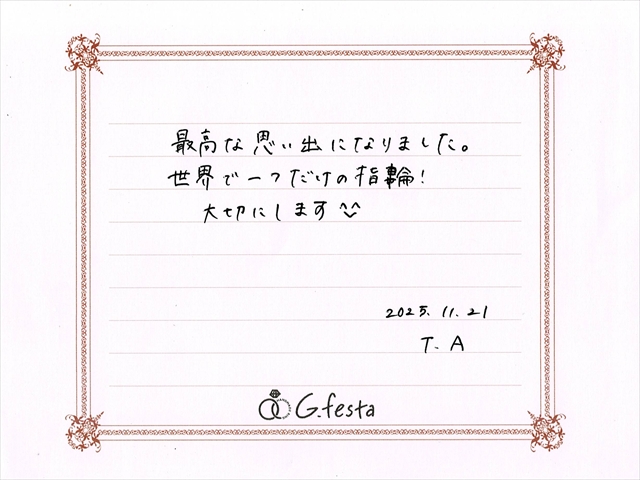 最高な思い出になりました。
世界で一つだけの指輪!
大切にします^^
2025.11.21
T.A
G.festa